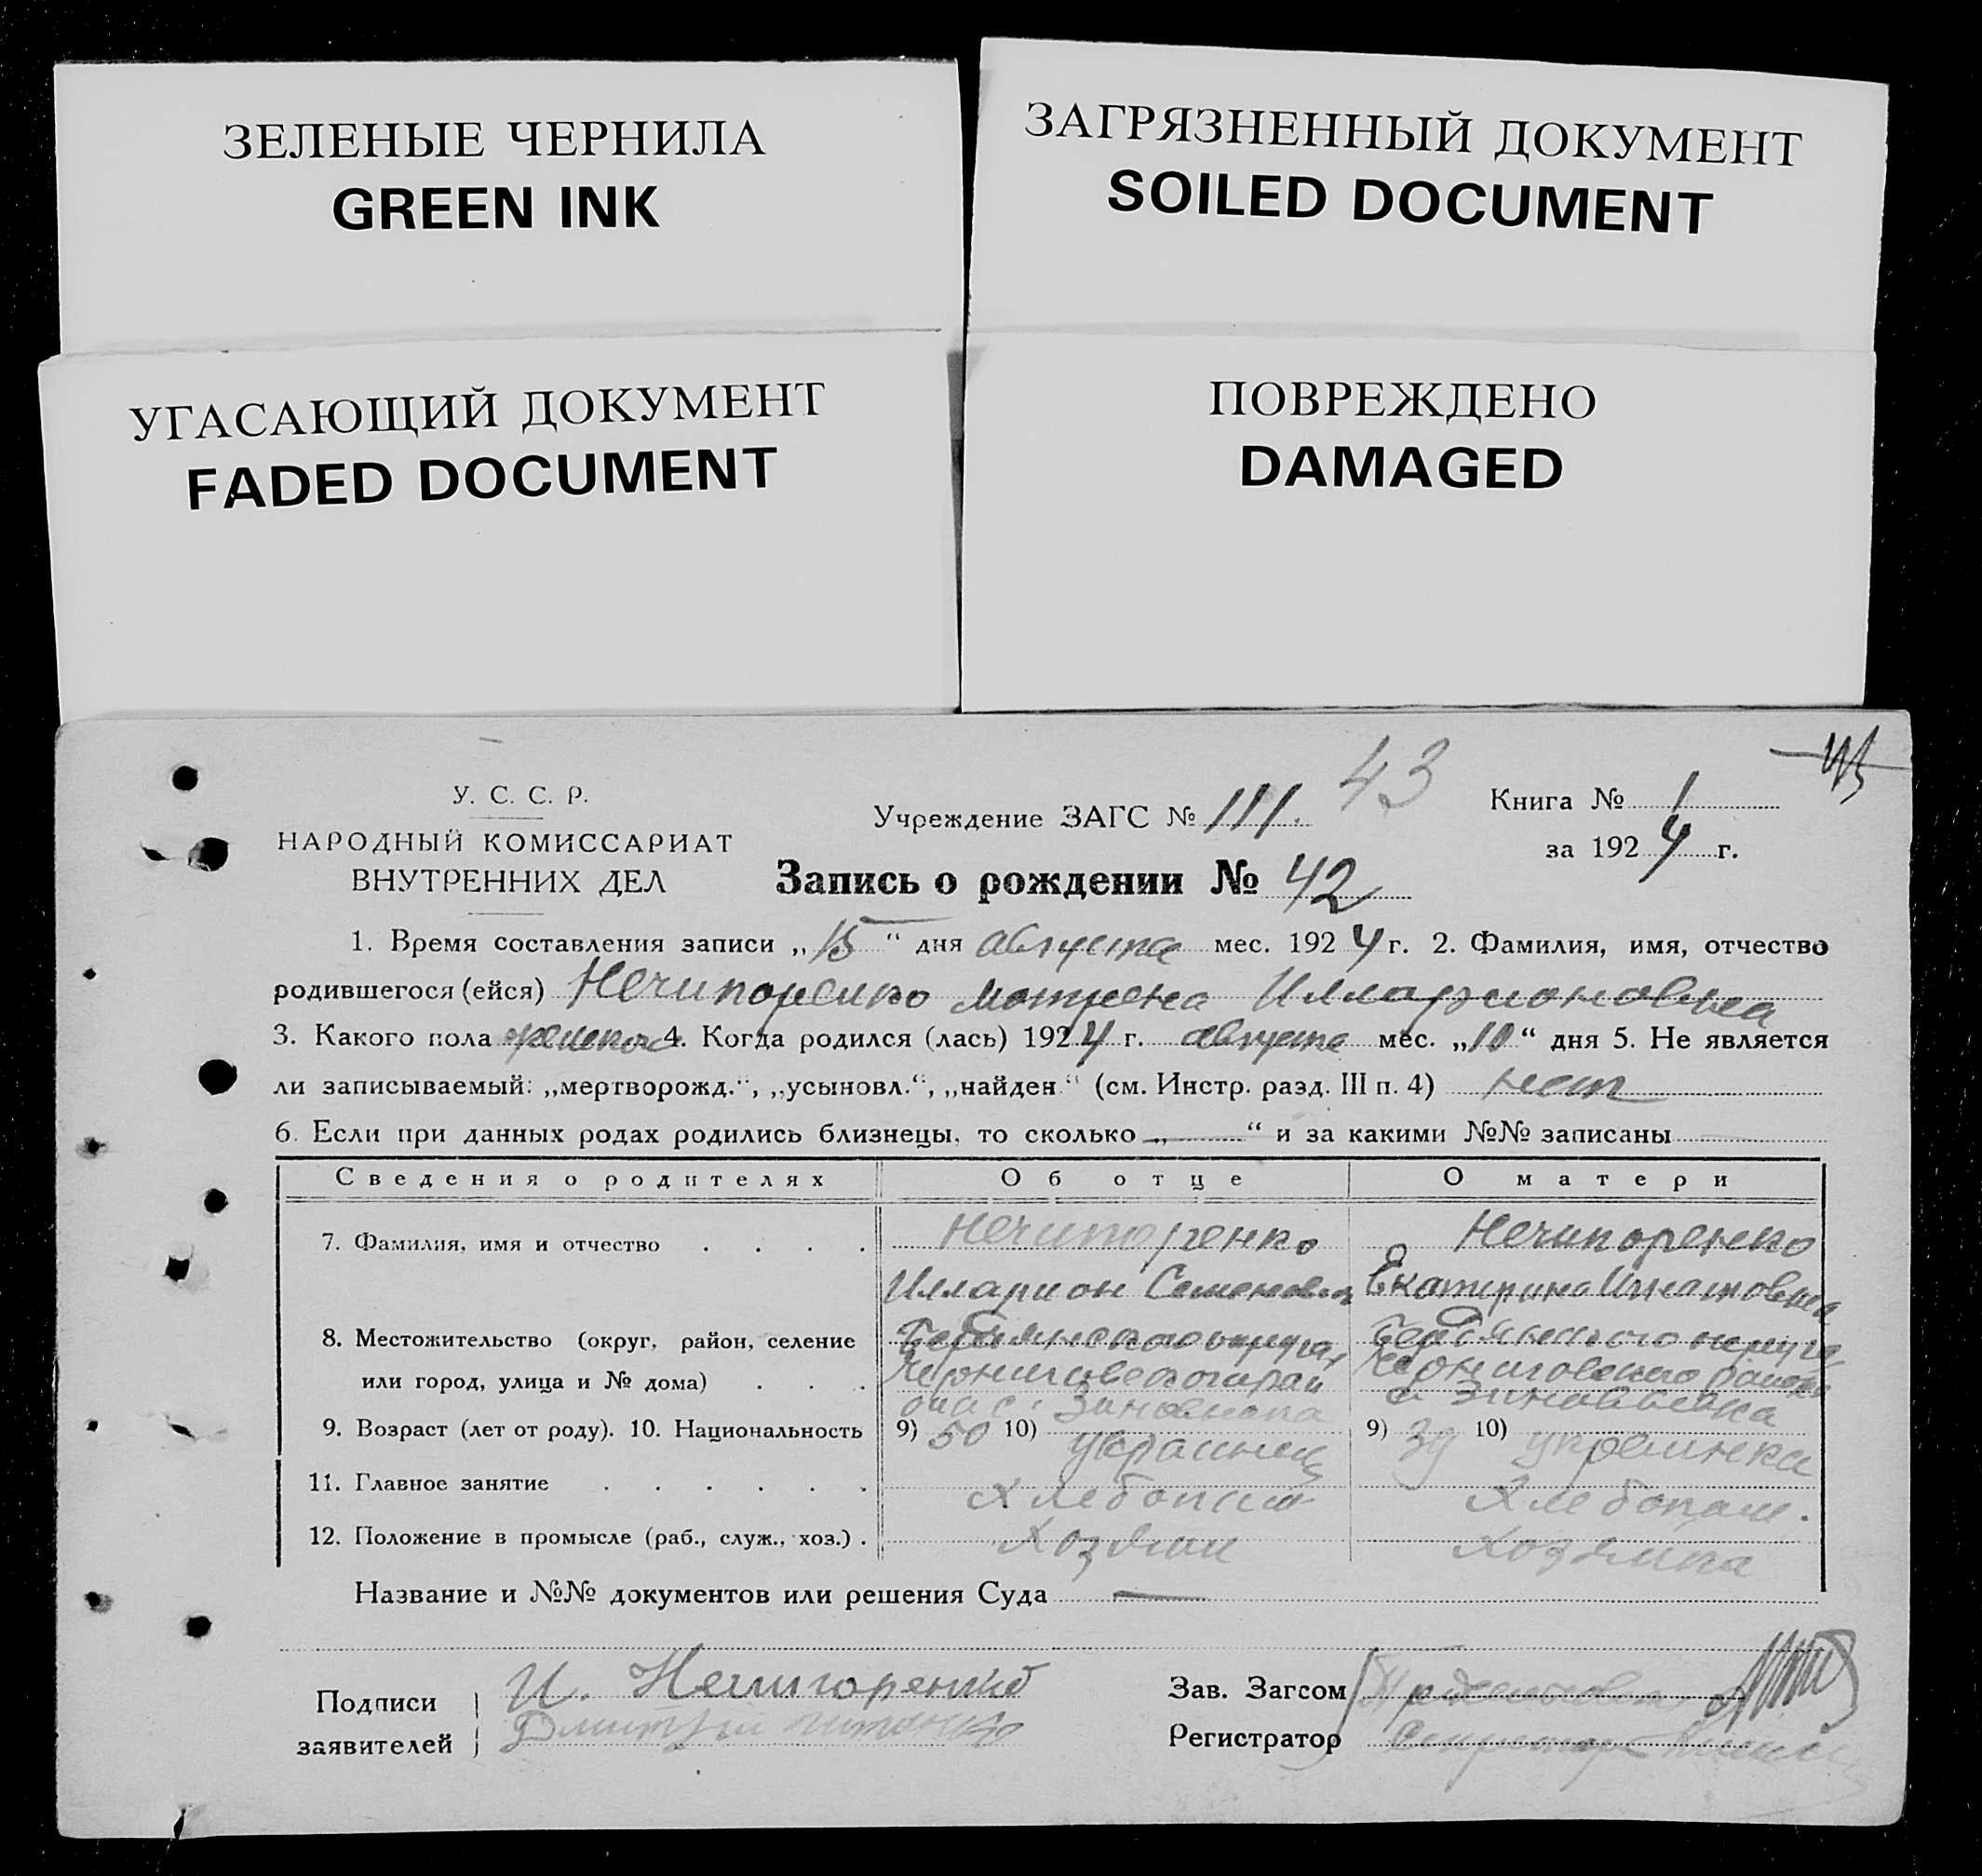 ЗЕЛЕНЫЕ ЧЕРНИЛА
GREEN INK
ЗАГРЯЗНЕННЫЙ ДОКУМЕНТ
SOILED DOCUMENT
УГАСАЮЩИЙ ДОКУМЕНТ
FADED DOCUMENT
ПОВРЕЖДЕНО
DAMAGED
43
У. С. С. Р.
НАРОДНЫЙ КОМИССАРИАТ
ВНУТРЕННИХ ДЕЛ
Учреждение ЗАГС № 111.
Книга № 1
за 1924 г.
Запись о рождении № 42
1. Время составления записи „15“ дня августа мес. 1924 г. 2. Фамилия, имя, отчество
родившегося (ейся) Нечипоренко Мотрена Илларионовна
3. Какого пола женского 4. Когда родился (лась) 1924 г. августа мес. „10“ дня 5. Не является
ли записываемый: „мертворожд.“, „усыновл.“, „найден“ (см. Инстр. разд. III п. 4) нет
6. Если при данных родах родились близнецы, то сколько „—“ и за какими №№ записаны
Сведения о родителях Об отце О матери
7. Фамилия, имя и отчество . . . . Нечипоренко Нечипоренко
Илларион Семенович Екатерина Игнатовна
8. Местожительство (округ, район, селение Бердянского округа Бердянского округа
или город, улица и № дома) . . . Черниговского рай Черниговского района
она с. Зиновьевка с Зиновьевка
9. Возраст (лет от роду). 10. Национальность 9) 50 10) украинец 9) 39 10) украинка
11. Главное занятие . . . . . . Хлебопаш Хлебопаш.
12. Положение в промысле (раб., служ., хоз.) . Хозяин Хозяйка
Название и №№ документов или решения Суда —
Подписи заявителей И. Нечипоренко
Дмитрий
Зав. Загсом
Регистратор Секретарь